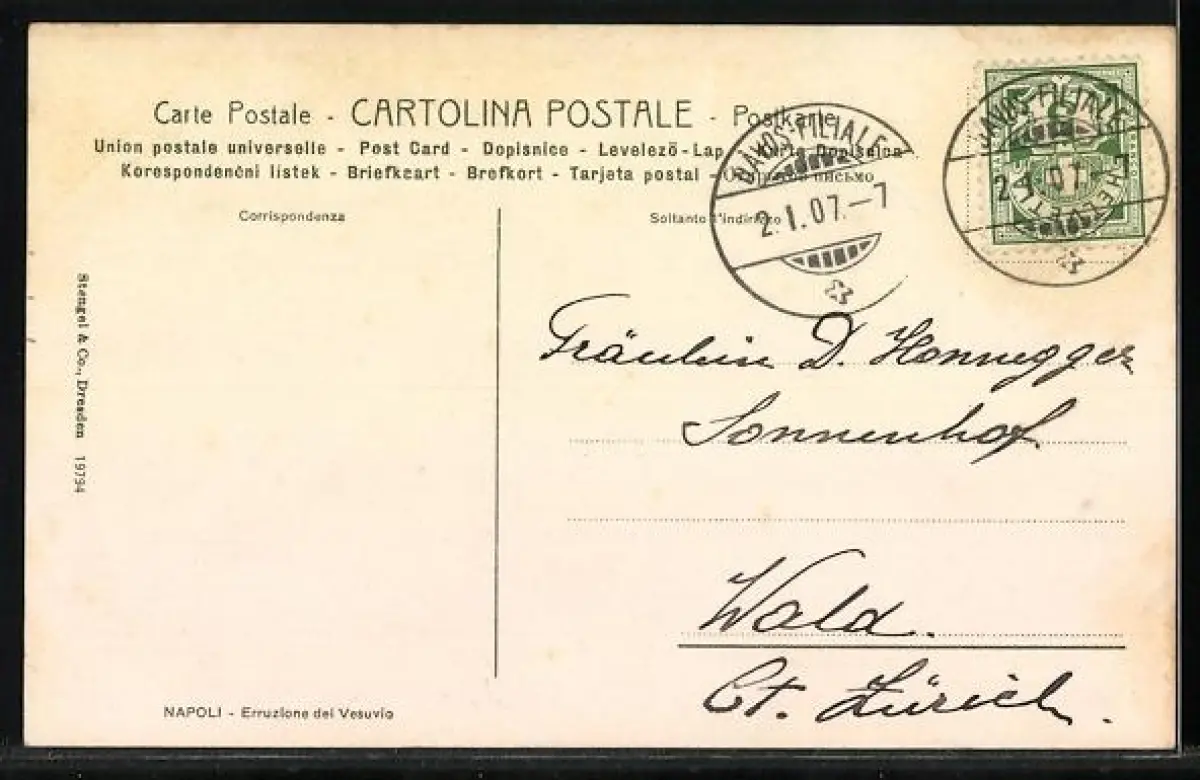 Carte Postale - CARTOLINA POSTALE - Postkarte
Union postale universelle - Post Card - Dopisnice - Levelező-Lap - Karta Dopisnica
Korespondenční lístek - Briefkaart - Brefkort - Tarjeta postal - Открытое письмо
Corrispondenza
Soltanto l'indirizzo
DAVOS-FILIALE
2.I.07.-7
DAVOS-FILIALE
2.I.07.-7
FRANCO
HELVETIA
Fräulein D. Honnegger
Sonnenhof
Wald.
Ct. Zürich.
Stengel & Co., Dresden 19794
NAPOLI - Erruzione del Vesuvio